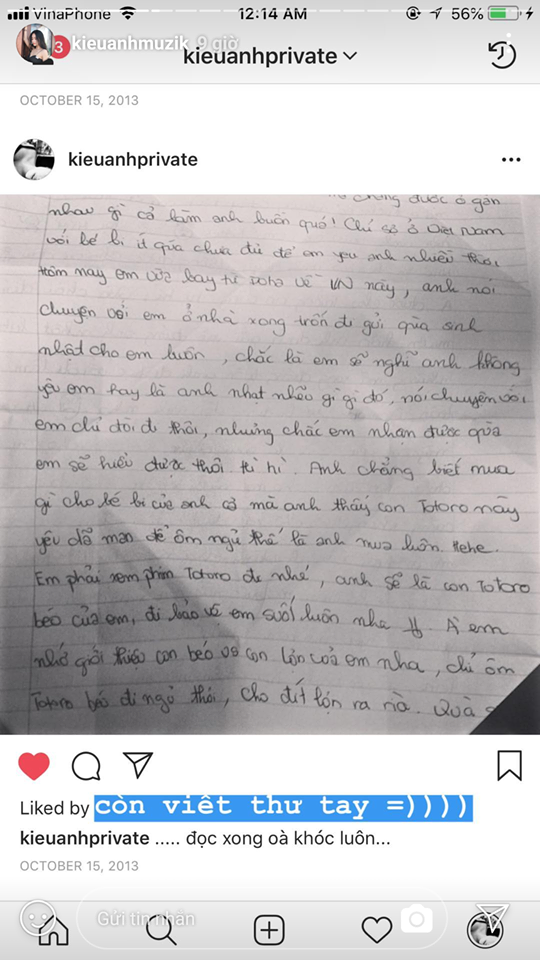 VinaPhone 12:14 AM 56%
3 kieuanhmuzik 9 giờ
kieuanhprivate
OCTOBER 15, 2013
kieuanhprivate
chẳng được ở gần
nhau gì cả làm anh buồn quá! Chỉ sợ ở Việt Nam
với bé bi ít quá chưa đủ để em yêu anh nhiều thôi
Hôm nay em vừa bay từ về VN này, anh nói
chuyện với em ở nhà xong trốn đi gửi quà sinh
nhật cho em luôn, chắc là em sẽ nghĩ anh không
yêu em hay là anh nhạt nhẽo gì gì đó, nói chuyện với
em chỉ đòi đi thôi, nhưng chắc em nhận được quà
em sẽ hiểu được thôi hì hì. Anh chẳng biết mua
gì cho bé bi của anh cả mà anh thấy con Totoro này
yêu dã man để ôm ngủ thế là anh mua luôn. Hehe.
Em phải xem phim Totoro đi nhé, anh sẽ là con Totoro
béo của em, đi bảo vệ em suốt luôn nha À em
nhớ giới thiệu con béo với con lợn của em nha, chỉ ôm
Totoro béo đi ngủ thôi, cho đít lợn ra rìa. Quà
Liked by còn viết thư tay =))))
kieuanhprivate ..... đọc xong oà khóc luôn...
OCTOBER 15, 2013
Gửi tin nhắn